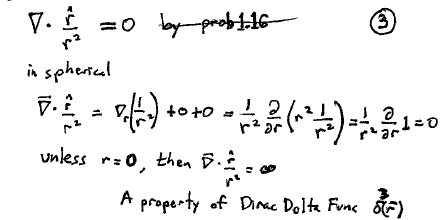 ∇ · r̂/r² = 0 by prob 1.16 ③
in spherical
∇⃗ · r̂/r² = ∇ᵣ(1/r²) + 0 + 0 = 1/r² ∂/∂r (r² 1/r²) = 1/r² ∂/∂r 1 = 0
unless r = 0, then ∇⃗ · r̂/r² = ∞
A property of Dirac Dolta Func δ³(r⃗)